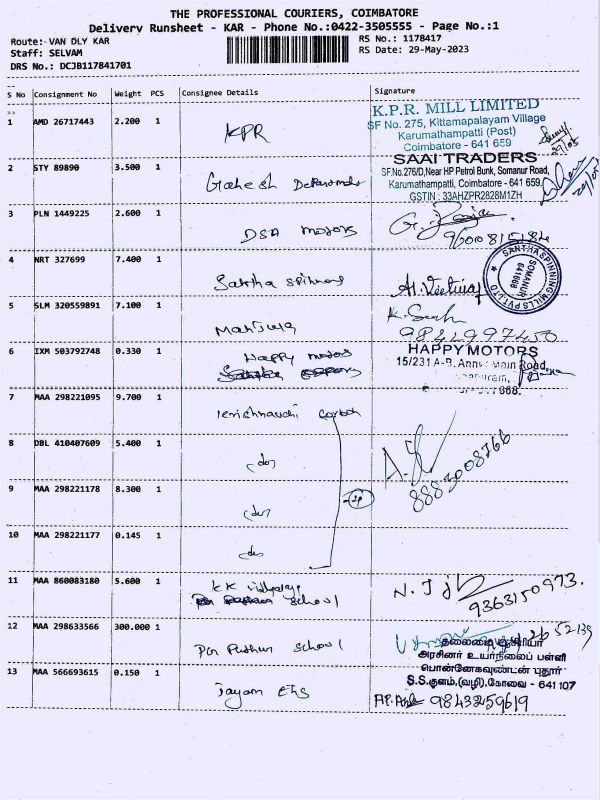 THE PROFESSIONAL COURIERS, COIMBATORE
Delivery Runsheet - KAR - Phone No.:0422-3505555 - Page No.:1
Route: VAN DLY KAR
Staff: SELVAM
DRS No.: DCJB117841701
RS No.: 1178417
RS Date: 29-May-2023
S No Consignment No Weight PCS Consignee Details Signature
1 AMD 26717443 2.200 1 KPR
K.P.R. MILL LIMITED
SF No. 275, Kittamapalayam Village
Karumathampatti (Post)
Coimbatore - 641 659
2 STY 89890 3.500 1
SAAI TRADERS
SF.No.276/D,Near HP Petrol Bunk, Somanur Road,
Karumathampatti, Coimbatore - 641 659.
GSTIN : 33AHZPR2828M1ZH
3 PLN 1449225 2.600 1 DSA motors
4 NRT 327699 7.400 1 Saktha spinning
SANTHA SPINNING MILLS PVT.LTD
SOMANUR
641668
5 SLM 320559891 7.100 1
9842997450
6 IXM 503792748 0.330 1 Happy motors
HAPPY MOTORS
15/231 A-B, Annur Main Road,
7 MAA 298221095 9.700 1
8 DBL 410407609 5.400 1 (do)
8883008766
9 MAA 298221178 8.300 1 (do)
10 MAA 298221177 0.145 1 (do)
11 MAA 860083180 5.600 1 KK vidhyalaya
school
9363150973.
12 MAA 298633566 300.000 1 Pon Puthur school
தலைமை ஆசிரியர்
அரசினர் உயர்நிலைப் பள்ளி
பொன்னேகவுண்டன் புதூர்
S.S.குளம்.(வழி).கோவை - 641 107
13 MAA 566693615 0.150 1 Jayam EHS
9843259619